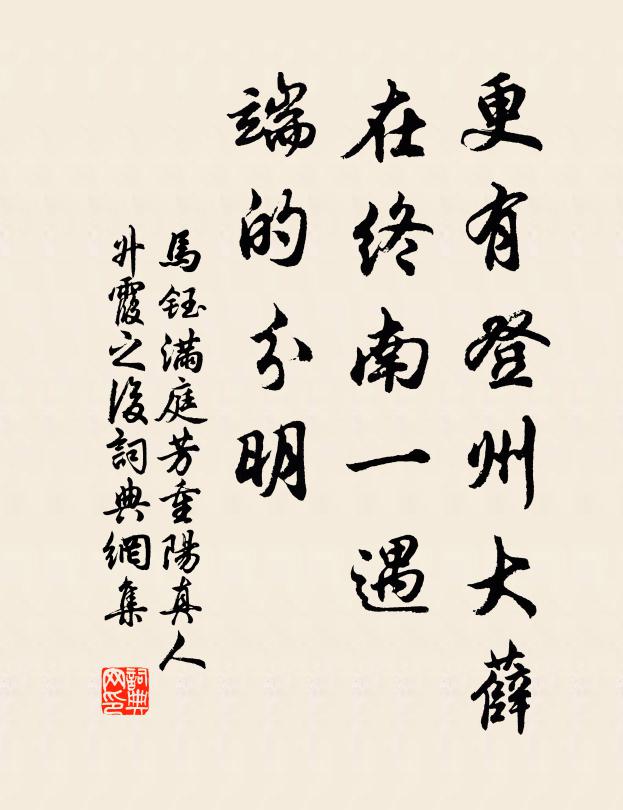 更有登州大薛
在終南一遇
端的分明
馬鈺滿庭芳重陽真人
升霞之後詞典網集
詞典网印